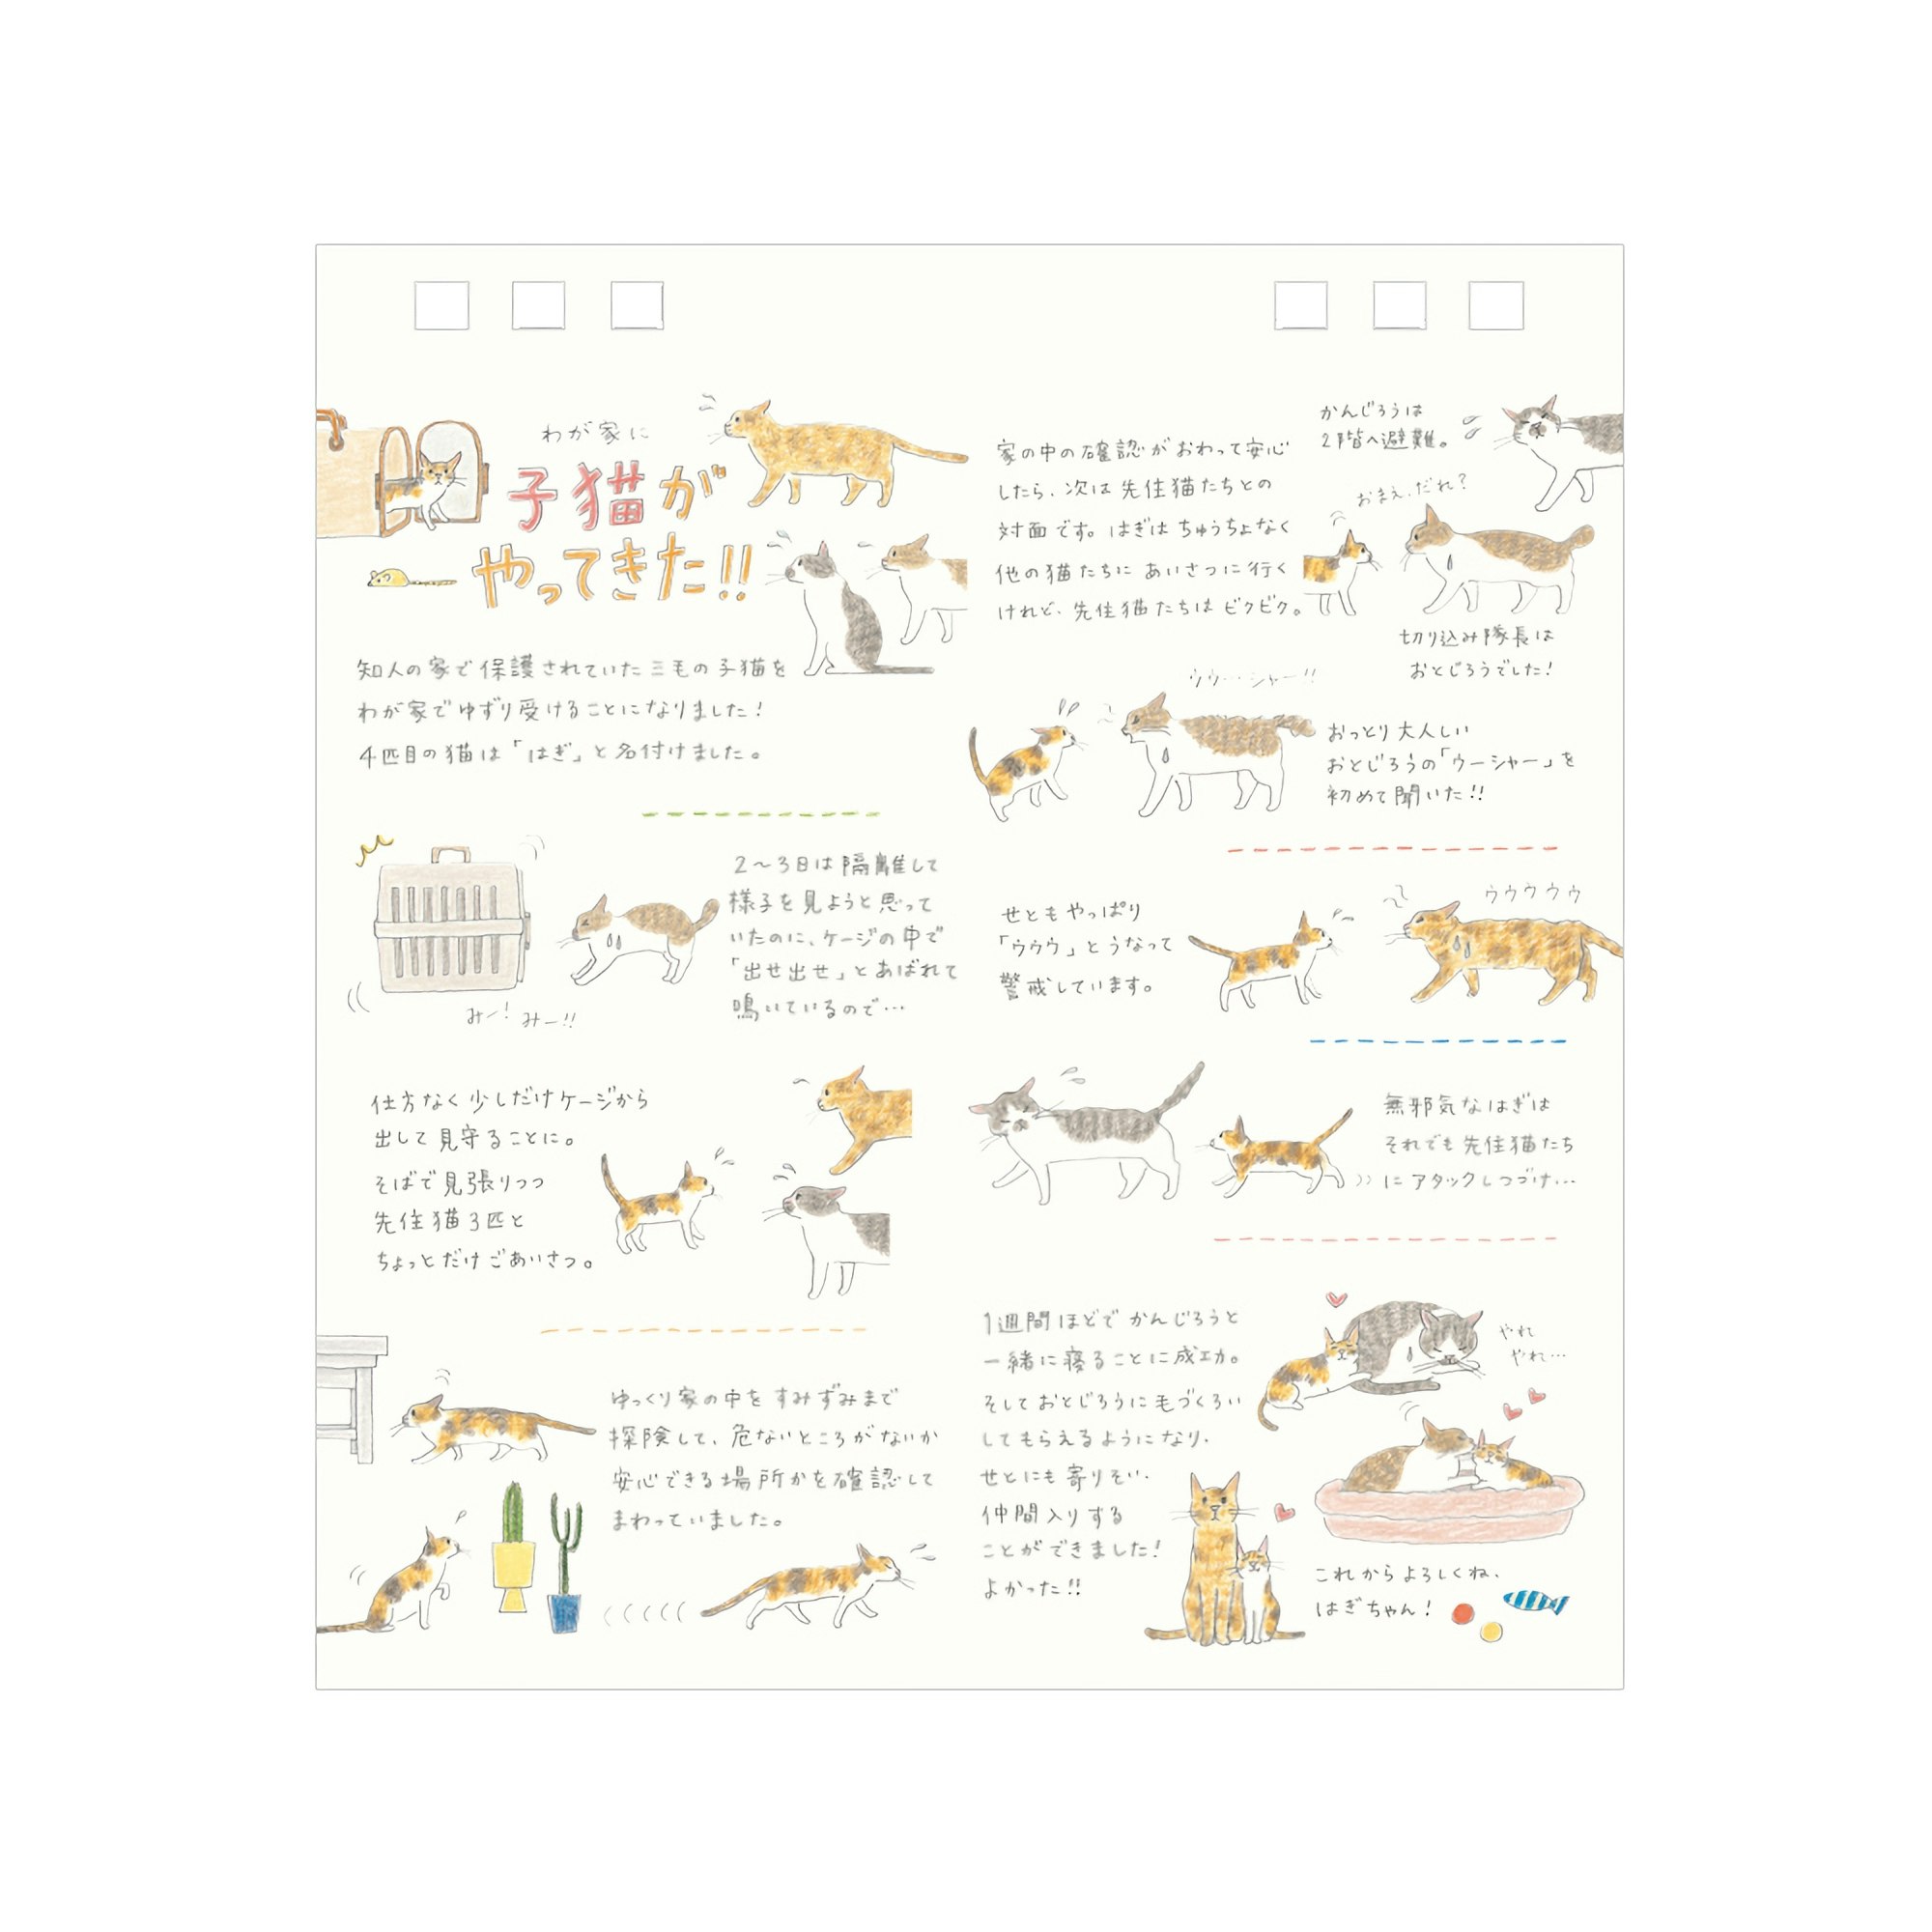 わが家に
子猫が
やってきた!!
知人の家で保護されていた三毛の子猫を
わが家でゆずり受けることになりました!
4匹目の猫は「はぎ」と名付けました。
2〜3日は隔離して
様子を見ようと思って
いたのに、ケージの中で
「出せ出せ」とあばれて
鳴いているので…
みー! みー!!
仕方なく少しだけケージから
出して見守ることに。
そばで見張りつつ
先住猫3匹と
ちょっとだけごあいさつ。
ゆっくり家の中をすみずみまで
探険して、危ないところがないか
安心できる場所かを確認して
まわっていました。
家の中の確認がおわって安心
したら、次は先住猫たちとの
対面です。はぎはちゅうちょなく
他の猫たちにあいさつに行く
けれど、先住猫たちはビクビク。
かんじろうは
2階へ避難。
おまえ、だれ?
切り込み隊長は
おとじろうでした!
ウウ…シャー!!
おっとり大人しい
おとじろうの「ウーシャー」を
初めて聞いた!!
せともやっぱり
「ウウウ」とうなって
警戒しています。
ウウウウウ
無邪気なはぎは
それでも先住猫たち
にアタックしつづけ…
1週間ほどでかんじろうと
一緒に寝ることに成功。
そしておとじろうに毛づくろい
してもらえるようになり、
せとにも寄りそい、
仲間入りする
ことができました!
よかった!!
やれ
やれ…
これからよろしくね、
はぎちゃん!